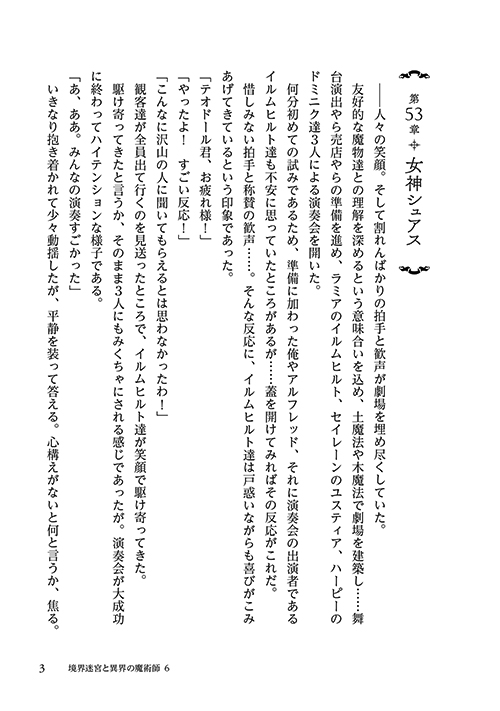 第53章 女神シュアス
――人々の笑顔。そして割れんばかりの拍手と歓声が劇場を埋め尽くしていた。
友好的な魔物達との理解を深めるという意味合いを込め、土魔法や木魔法で劇場を建築し……舞
台演出やら売店やらの準備を進め、ラミアのイルムヒルト、セイレーンのユスティア、ハーピーの
ドミニク達3人による演奏会を開いた。
何分初めての試みであるため、準備に加わった俺やアルフレッド、それに演奏会の出演者である
イルムヒルト達も不安に思っていたところがあるが……蓋を開けてみればその反応がこれだ。
惜しみない拍手と称賛の歓声……。そんな反応に、イルムヒルト達は戸惑いながらも喜びがこみ
あげてきているという印象であった。
「テオドール君、お疲れ様！」
「やったよ！　すごい反応！」
「こんなに沢山の人に聞いてもらえるとは思わなかったわ！」
観客達が全員出て行くのを見送ったところで、イルムヒルト達が笑顔で駆け寄ってきた。
駆け寄ってきたと言うか、そのまま3人にもみくちゃにされる感じであったが。演奏会が大成功
に終わってハイテンションな様子である。
「あ、ああ。みんなの演奏すごかった」
いきなり抱き着かれて少々動揺したが、平静を装って答える。心構えがないと何と言うか、焦る。
3 境界迷宮と異界の魔術師 6